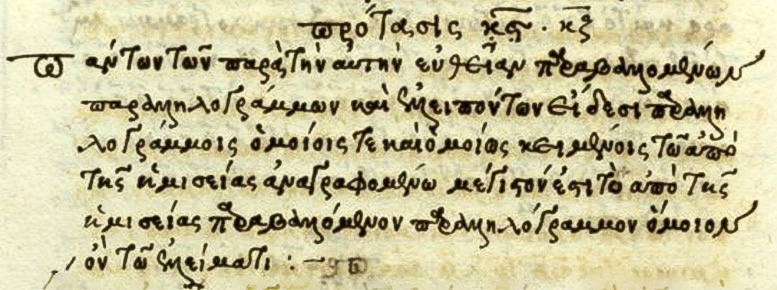 πρότασις κϛ · κζ
Πάντων τῶν παρὰ τὴν αὐτὴν εὐθεῖαν παραβαλλομένων
παραλληλογράμμων καὶ ἐλλειπόντων εἴδεσι παραλλη
λογράμμοις ὁμοίοις τε καὶ ὁμοίως κειμένοις τῶ ἀπὸ
τῆς ἡμισείας ἀναγραφομένω μέγιστόν ἐστι τὸ ἀπὸ τῆς
ἡμισείας παραβαλλόμενον παραλληλόγραμμον ὅμοιον
ὂν τῶ ἐλλείματι :~